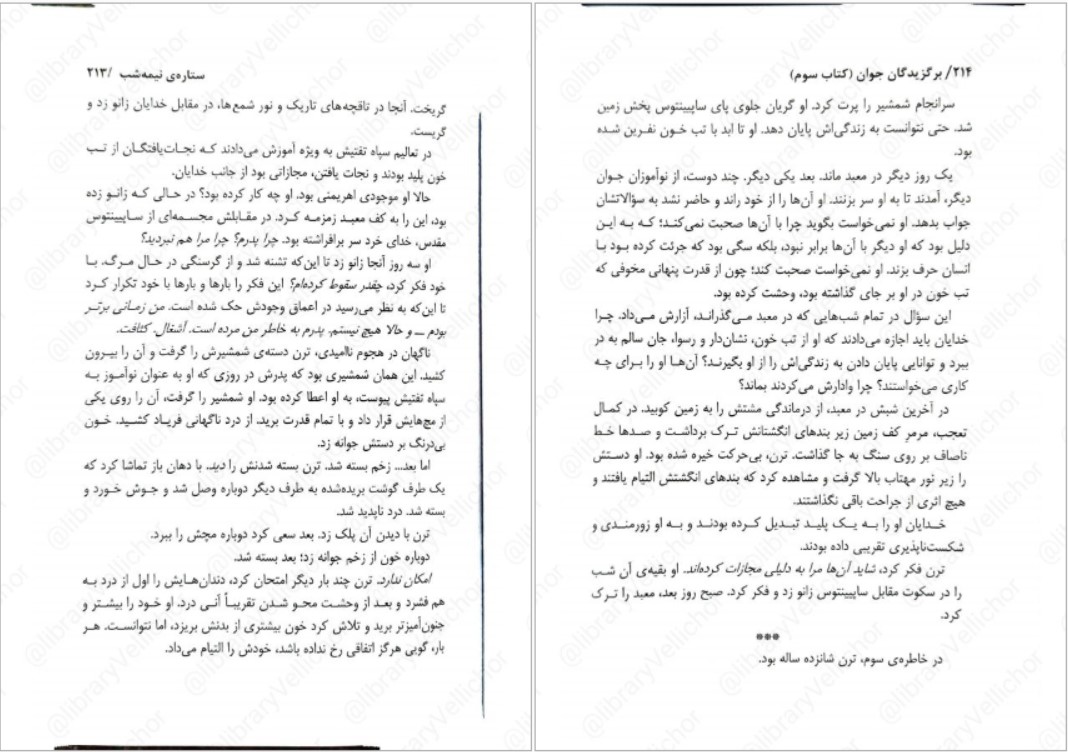 ستاره‌ی نیمه‌شب /۲۱۳
گریخت. آنجا در تاقچه‌های تاریک و نور شمع‌ها، در مقابل خدایان زانو زد و
گریست.
در تعالیم سپاه تفتیش به ویژه آموزش می‌دادند که نجات‌یافتگان از تب
خون پلید بودند و نجات یافتن، مجازاتی بود از جانب خدایان.
حالا او موجودی اهریمنی بود. او چه کار کرده بود؟ در حالی که زانو زده
بود، این را به کف معبد زمزمه کرد. در مقابلش مجسمه‌ای از ساپینتوس
مقدس، خدای خرد سر برافراشته بود. چرا پدرم؟ چرا مرا هم نبردید؟
او سه روز آنجا زانو زد تا این‌که تشنه شد و از گرسنگی در حال مرگ. با
خود فکر کرد، چقدر سقوط کرده‌ام؟ این فکر را بارها و بارها با خود تکرار کرد
تا این‌که به نظر می‌رسید در اعماق وجودش حک شده است. من زمانی برتر
بودم ــ و حالا هیچ نیستم. پدرم به خاطر من مرده است. آشغال. کثافت.
ناگهان در هجوم ناامیدی، ترن دسته‌ی شمشیرش را گرفت و آن را بیرون
کشید. این همان شمشیری بود که پدرش در روزی که او به عنوان نوآموز به
سپاه تفتیش پیوست، به او اعطا کرده بود. او شمشیر را گرفت، آن را روی یکی
از مچ‌هایش قرار داد و با تمام قدرت برید. از درد ناگهانی فریاد کشید. خون
بی‌درنگ بر دستش جوانه زد.
اما بعد... زخم بسته شد. ترن بسته شدنش را دید. با دهان باز تماشا کرد که
یک طرف گوشت بریده‌شده به طرف دیگر دوباره وصل شد و جوش خورد و
بسته شد. درد ناپدید شد.
ترن با دیدن آن پلک زد. بعد سعی کرد دوباره مچش را ببرد.
دوباره خون از زخم جوانه زد؛ بعد بسته شد.
امکان ندارد. ترن چند بار دیگر امتحان کرد، دندان‌هایش را اول از درد به
هم فشرد و بعد از وحشت محو شدن تقریباً آنی درد. او خود را بیشتر و
جنون‌آمیزتر برید و تلاش کرد خون بیشتری از بدنش بریزد، اما نتوانست. هر
بار، گویی هرگز اتفاقی رخ نداده باشد، خودش را التیام می‌داد.
۲۱۴/ برگزیدگان جوان (کتاب سوم)
سرانجام شمشیر را پرت کرد. او گریان جلوی پای ساپینتوس پخش زمین
شد. حتی نتوانست به زندگی‌اش پایان دهد. او تا ابد با تب خون نفرین شده
بود.
یک روز دیگر در معبد ماند. بعد یکی دیگر. چند دوست، از نوآموزان جوان
دیگر، آمدند تا به او سر بزنند. او آن‌ها را از خود راند و حاضر نشد به سؤالاتشان
جواب بدهد. او نمی‌خواست بگوید چرا با آن‌ها صحبت نمی‌کند؛ که به این
دلیل بود که او دیگر با آن‌ها برابر نبود، بلکه سگی بود که جرئت کرده بود با
انسان حرف بزند. او نمی‌خواست صحبت کند؛ چون از قدرت پنهانی مخوفی که
تب خون در او بر جای گذاشته بود، وحشت کرده بود.
این سؤال در تمام شب‌هایی که در معبد می‌گذراند، آزارش می‌داد. چرا
خدایان باید اجازه می‌دادند که او از تب خون، نشان‌دار و رسوا، جان سالم به در
ببرد و توانایی پایان دادن به زندگی‌اش را از او بگیرند؟ آن‌ها او را برای چه
کاری می‌خواستند؟ چرا وادارش می‌کردند بماند؟
در آخرین شبش در معبد، از درماندگی مشتش را به زمین کوبید. در کمال
تعجب، مرمر کف زمین زیر بندهای انگشتانش ترک برداشت و صدها خط
ناصاف بر روی سنگ به جا گذاشت. ترن، بی‌حرکت خیره شده بود. او دستش
را زیر نور مهتاب بالا گرفت و مشاهده کرد که بندهای انگشتش التیام یافتند و
هیچ اثری از جراحت باقی نگذاشتند.
خدایان او را به یک پلید تبدیل کرده بودند و به او زورمندی و
شکست‌ناپذیری تقریبی داده بودند.
ترن فکر کرد، شاید آن‌ها مرا به دلیلی مجازات کرده‌اند. او بقیه‌ی آن شب
را در سکوت مقابل ساپینتوس زانو زد و فکر کرد. صبح روز بعد، معبد را ترک
کرد.
***
در خاطره‌ی سوم، ترن شانزده ساله بود.
@libraryVellichor